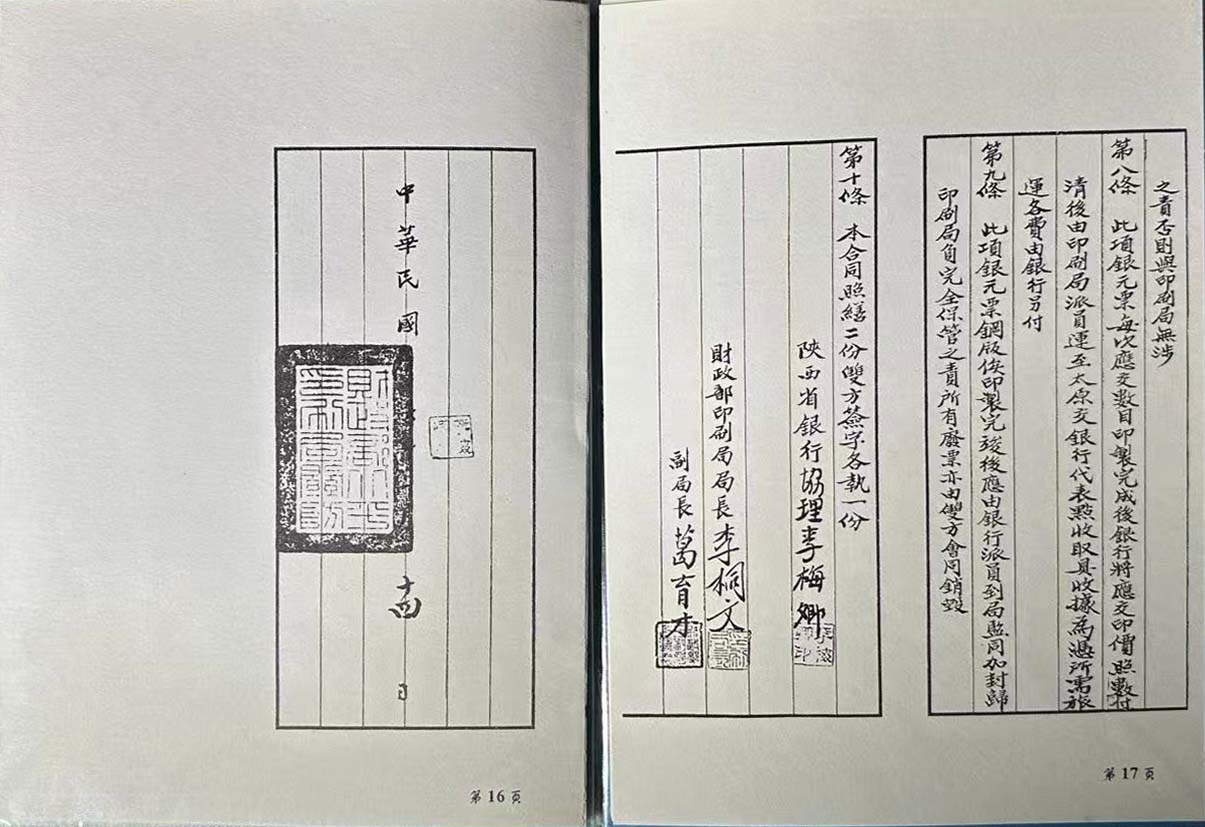 之責否則與印刷局無涉
第八條 此項銀元票每次應交數目印製完成後銀行將應交印價照數付
清後由印刷局派員運至太原交銀行代表點收取具收據為憑所需旅
運各費由銀行另付
第九條 此項銀元票鋼版俟印製完竣後應由銀行派員到局監同加封歸
印刷局負完全保管之責所有廢票亦由雙方會同銷毀
第十條 本合同照繕二份雙方簽字各執一份
陝西省銀行協理李梅卿
財政部印刷局局長李桐文
副局長葛育才
第17页
中華民國
十四 日
第16页